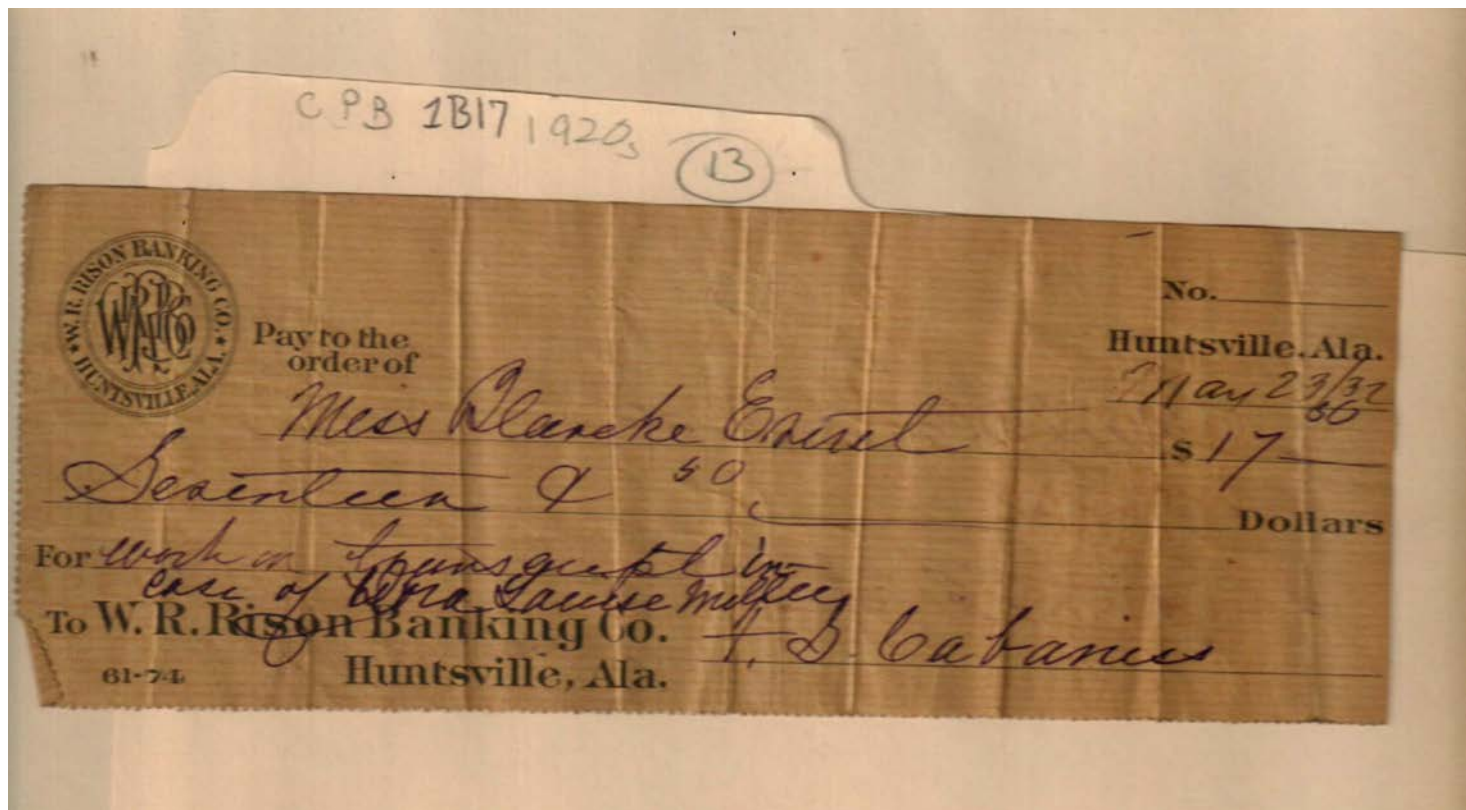 CPB 1B17 1920s
13
W. R. RISON BANKING CO.
HUNTSVILLE, ALA.
No.
Huntsville, Ala.
May 23/32
Pay to the
order of
Miss Blanche
$ 17
50
Seventeen & 50
Dollars
For work on transcript in
case of Louise
To W. R. Rison Banking Co.
Huntsville, Ala.
61-74
Cabaniss